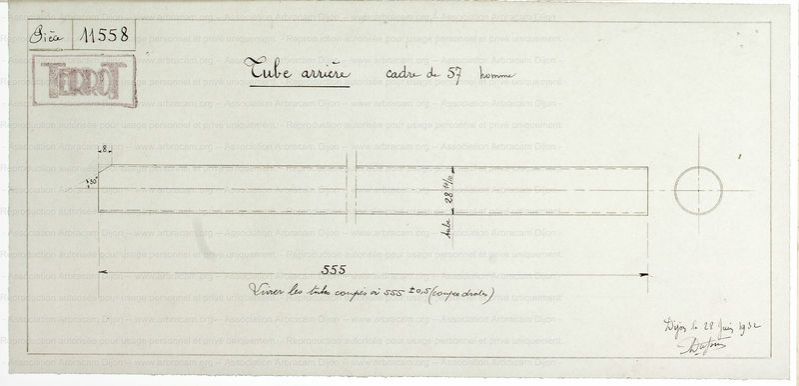 Pièce 11558
TERROT
Tube arrière cadre de 57 homme
8
30°
tube 28 11/10
555
Livrer les tubes coupés à 555 ± 0,5 (coupe droite)
Dijon le 28 Juin 1932
Reproduction autorisée pour usage personnel et privé uniquement. – Association Arbracam Dijon – www.arbracam.org